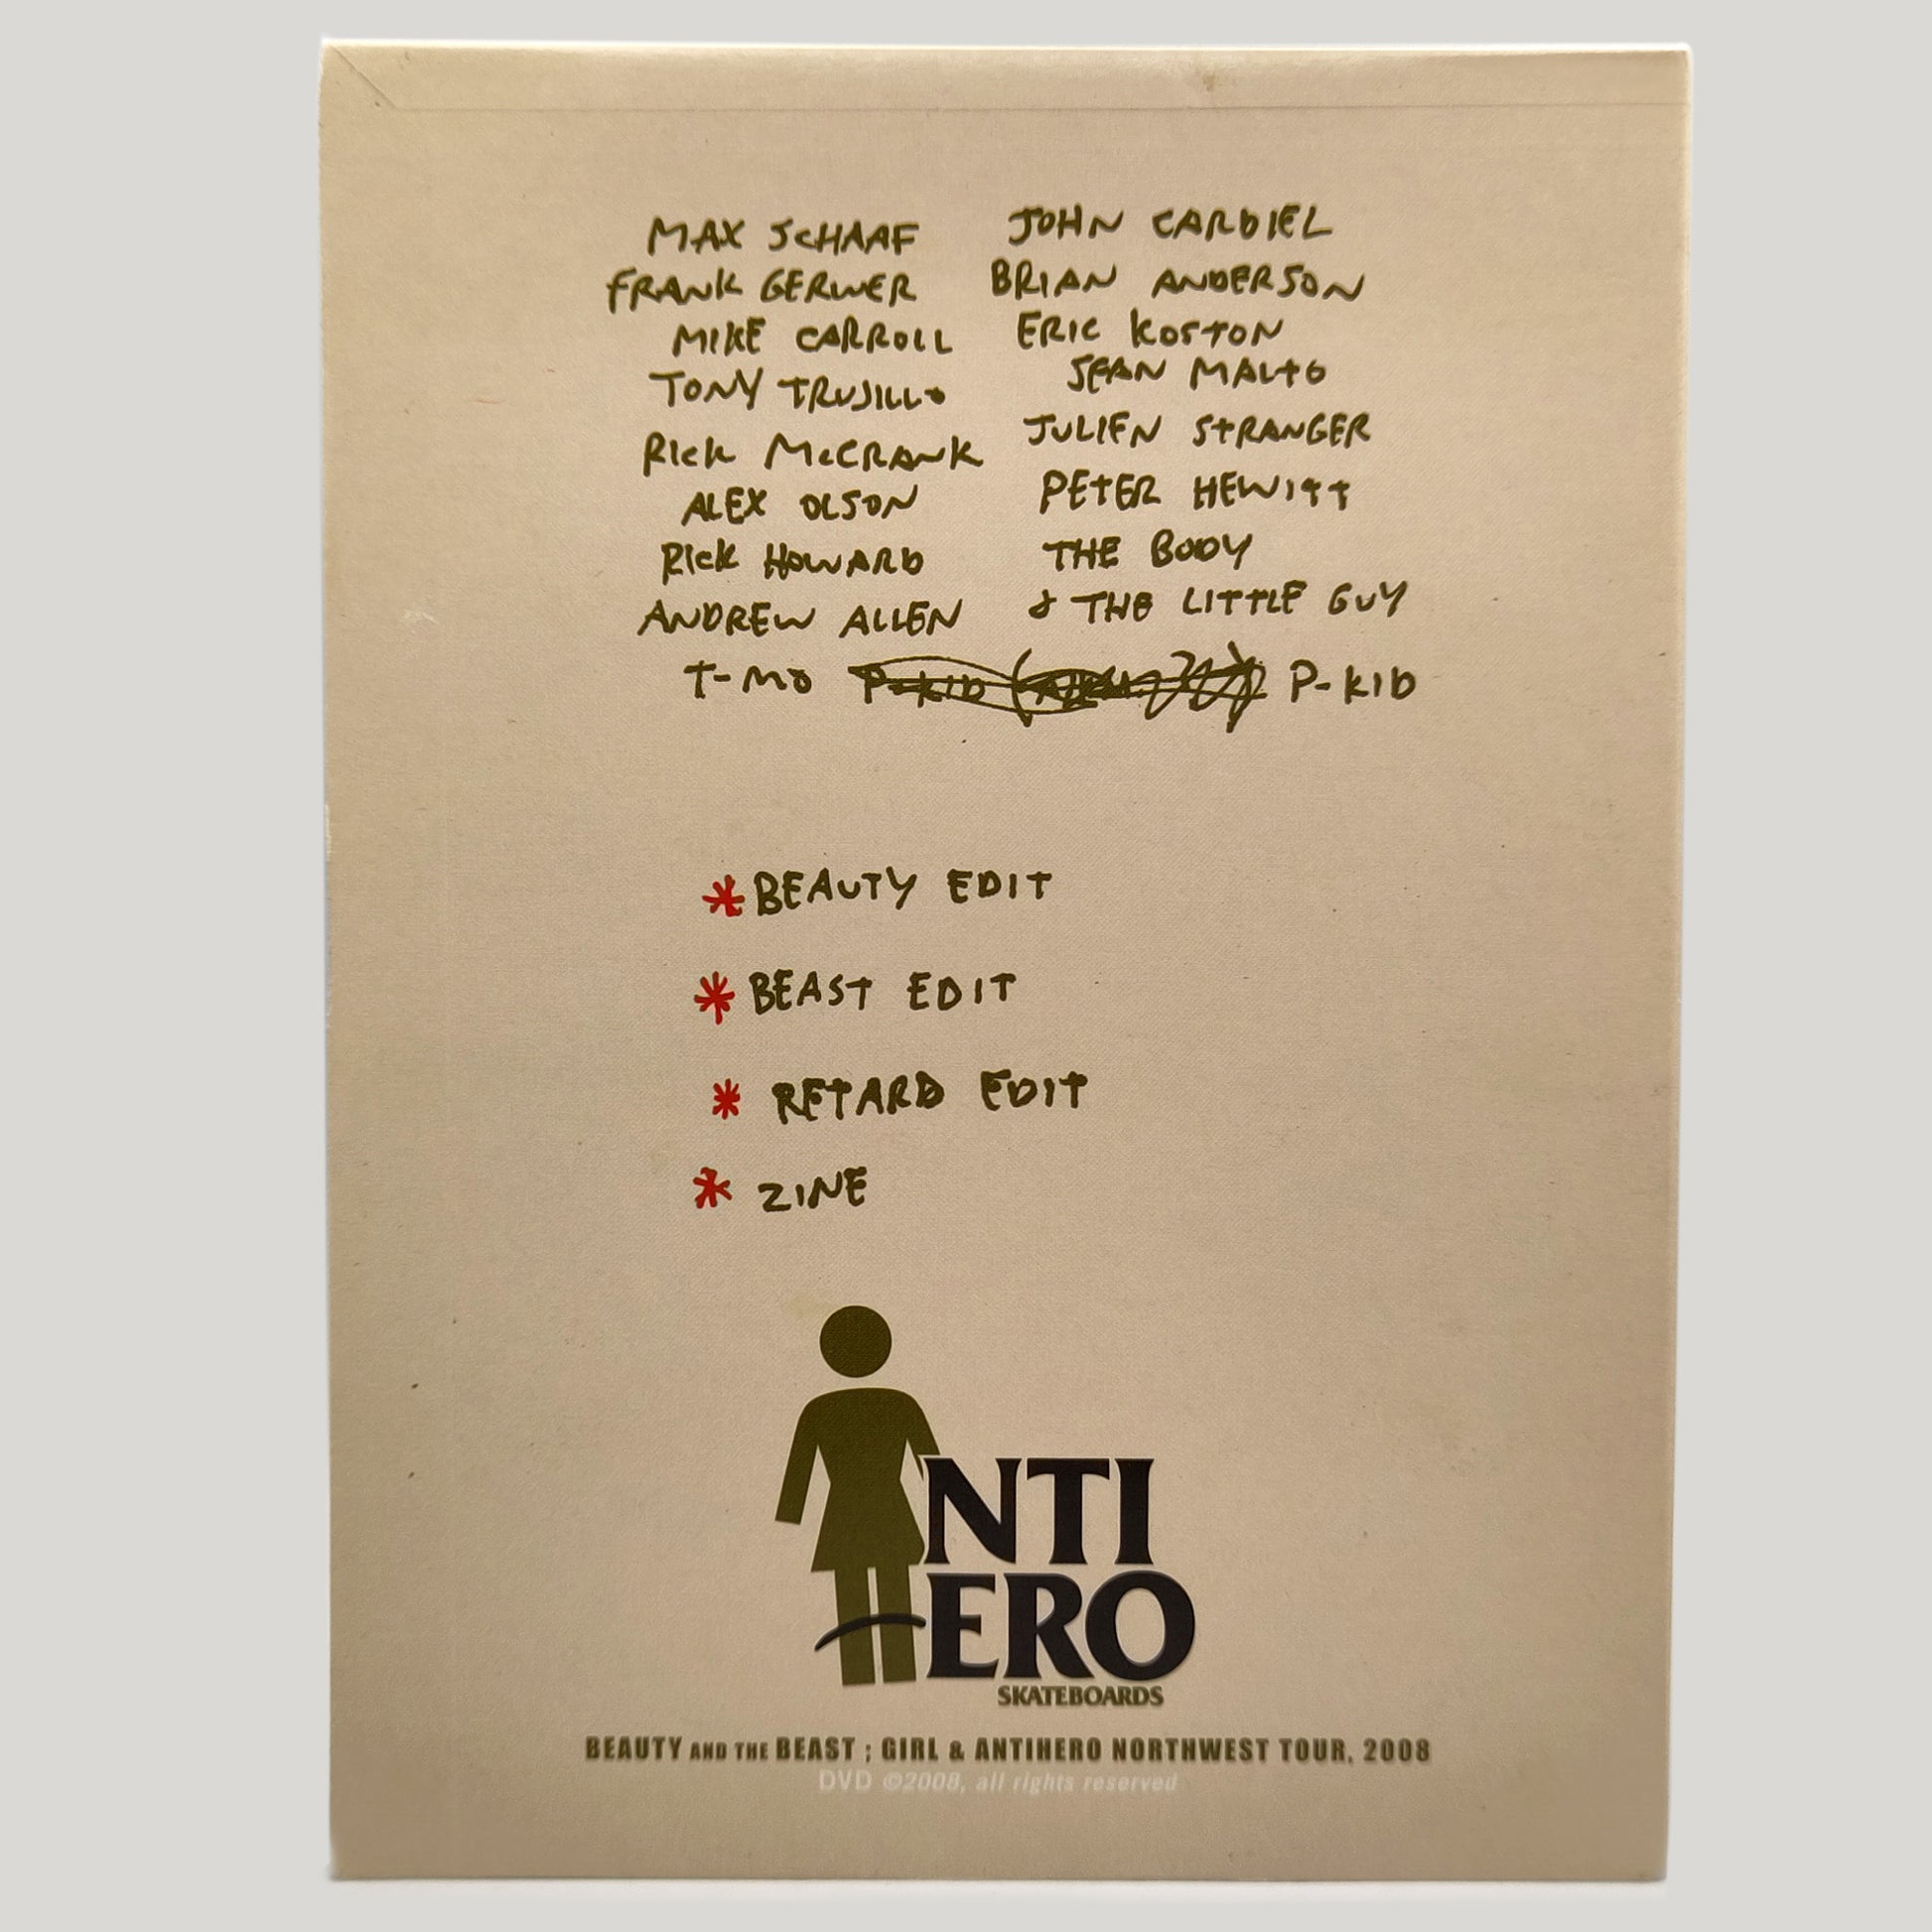 MAX SCHAAF JOHN CARDIEL
FRANK GERWER BRIAN ANDERSON
MIKE CARROLL ERIC KOSTON
TONY TRUJILLO SEAN MALTO
RICK McCRANK JULIEN STRANGER
ALEX OLSON PETER HEWITT
RICK HOWARD THE BODY
ANDREW ALLEN & THE LITTLE GUY
T-MO P-KID P-KID
* BEAUTY EDIT
* BEAST EDIT
* RETARD EDIT
* ZINE
NTI
ERO
SKATEBOARDS
BEAUTY AND THE BEAST ; GIRL & ANTIHERO NORTHWEST TOUR, 2008
DVD ©2008, all rights reserved